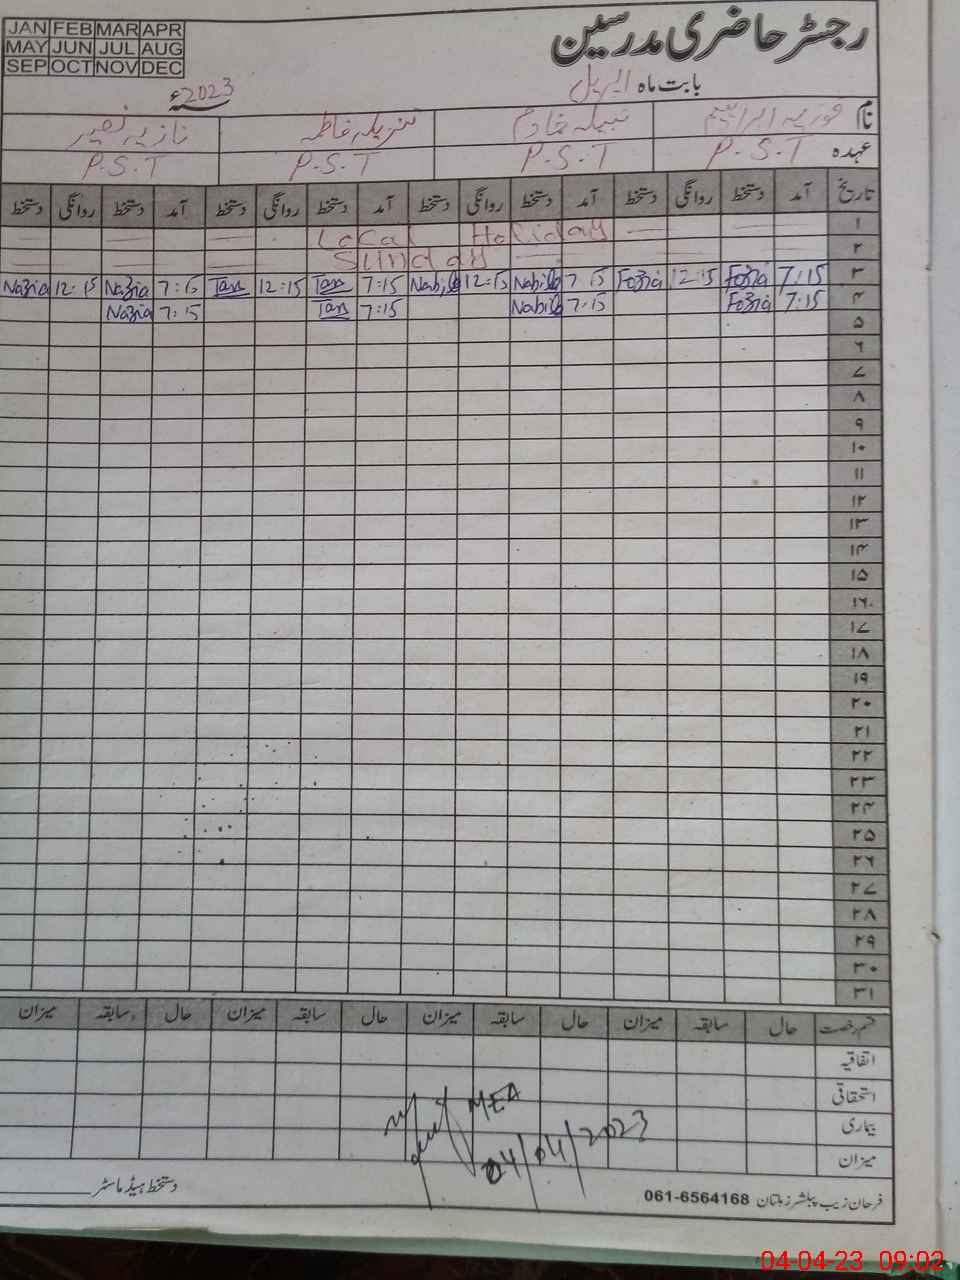 JAN FEB MAR APR
MAY JUN JUL AUG
SEP OCT NOV DEC
رجسٹر حاضری مدرسین
بابت ماہ اپریل 2023ء
نام فوزیہ ابراہیم نبیلہ خادم تنزیلہ فاطمہ نازیہ نصیر
عہدہ P.S.T P.S.T P.S.T P.S.T
تاریخ آمد دستخط روانگی دستخط آمد دستخط روانگی دستخط آمد دستخط روانگی دستخط آمد دستخط روانگی دستخط
۱ Local Holiday
۲ Sunday
۳ 7:15 Fozia 12:15 Fozia 7:15 Nabila 12:15 Nabila 7:15 Tan 12:15 Tan 7:15 Nazia 12:15 Nazia
۴ 7:15 Fozia 7:15 Nabila 7:15 Tan 7:15 Nazia
۵
۶
۷
۸
۹
۱۰
۱۱
۱۲
۱۳
۱۴
۱۵
۱۶
۱۷
۱۸
۱۹
۲۰
۲۱
۲۲
۲۳
۲۴
۲۵
۲۶
۲۷
۲۸
۲۹
۳۰
۳۱
قسم رخصت حال سابقہ میزان حال سابقہ میزان حال سابقہ میزان حال سابقہ میزان
اتفاقیہ
استحقاقی
بیماری
میزان
MEA
04/04/2023
دستخط ہیڈ ماسٹر
فرحان زیب پبلشرز ملتان 061-6564168
04-04-23 09:02